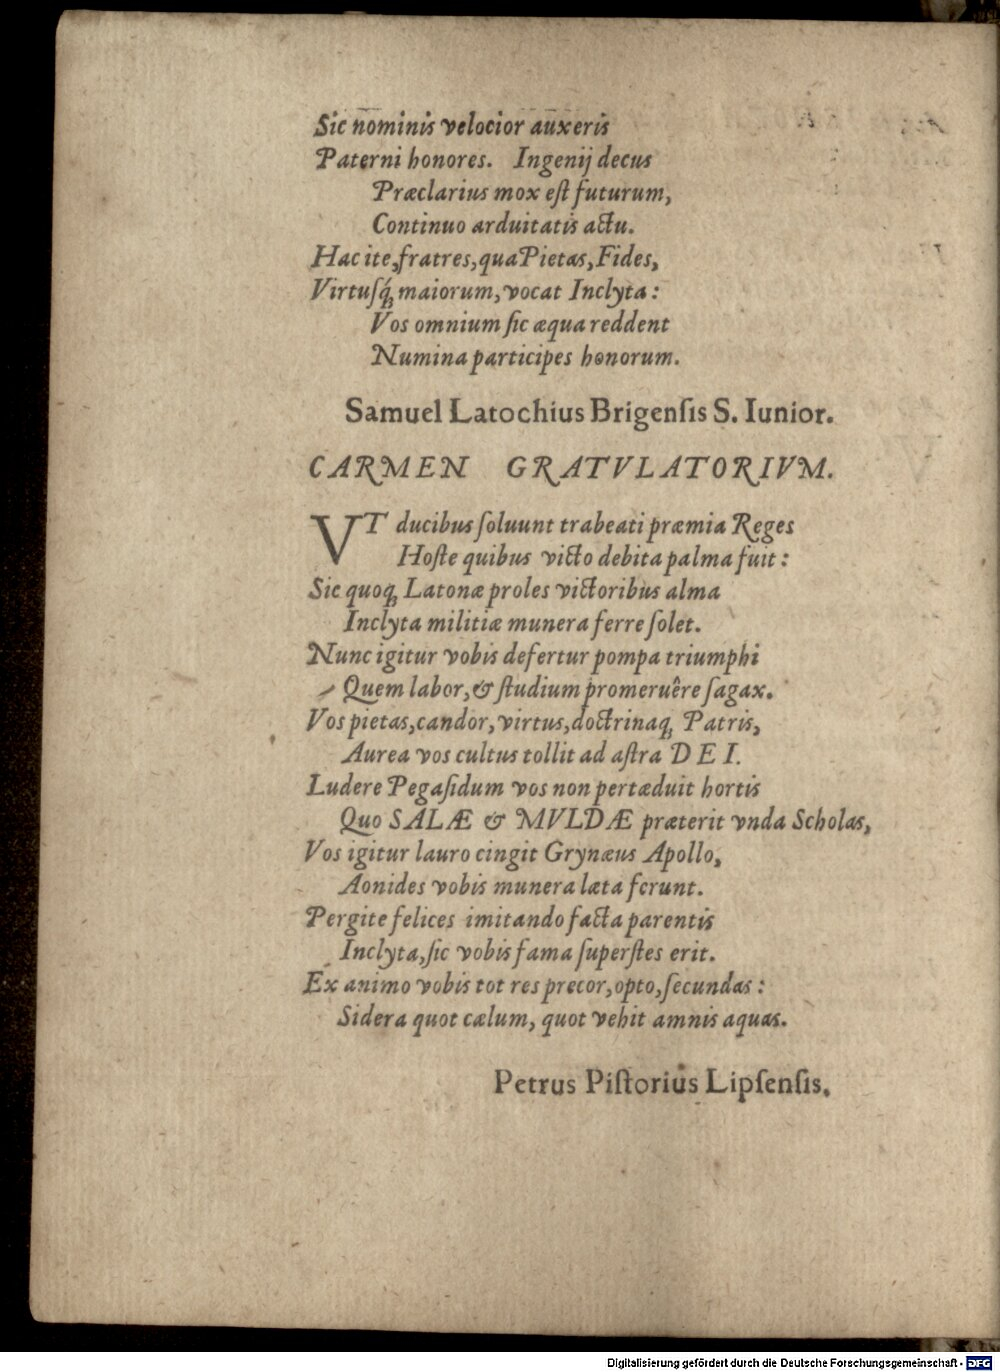 Sic nominis velocior auxeris
Paterni honores. Ingenij decus
Præclarius mox eſt futurum,
Continuo arduitatis actu.
Hac ite, fratres, qua Pietas, Fides,
Virtuſq́; maiorum, vocat Inclyta:
Vos omnium ſic æqua reddent
Numina participes honorum.
Samuel Latochius Brigenſis S. Iunior.
CARMEN GRATVLATORIVM.
VT ducibus ſoluunt trabeati præmia Reges
Hoſte quibus victo debita palma fuit:
Sic quoq; Latonæ proles victoribus alma
Inclyta militiæ munera ferre ſolet.
Nunc igitur vobis defertur pompa triumphi
Quem labor, & ſtudium promeruêre ſagax.
Vos pietas, candor, virtus, doctrinaq; Patris,
Aurea vos cultus tollit ad aſtra DEI.
Ludere Pegaſidum vos non pertæduit hortis
Quo SALÆ & MVLDÆ præterit vnda Scholas,
Vos igitur lauro cingit Grynæus Apollo,
Aonides vobis munera læta ferunt.
Pergite felices imitando facta parentis
Inclyta, ſic vobis fama ſuperſtes erit.
Ex animo vobis tot res precor, opto, ſecundas:
Sidera quot cælum, quot vehit amnis aquas.
Petrus Piſtorius Lipſenſis.
Digitalisierung gefördert durch die Deutsche Forschungsgemeinschaft - DFG